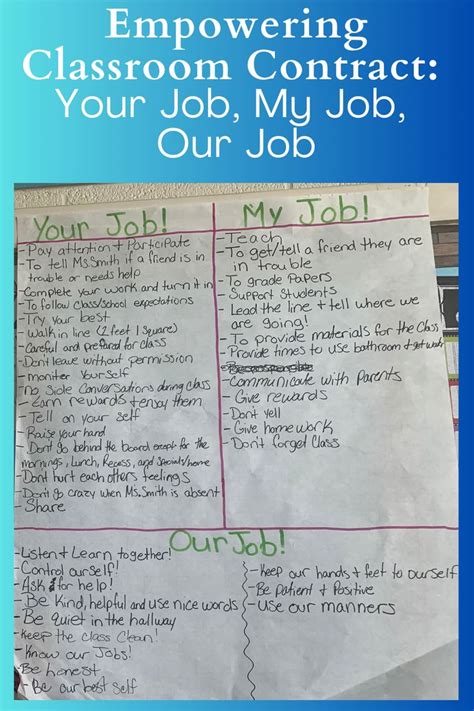 Empowering
Classroom Contract:
Your Job, My Job,
Our Job
Your Job!
-Pay attention + Participate
-To tell Ms.Smith if a friend is in
trouble or needs help
-Complete your work and turn it in
-To follow class/school expectations
-Try your best
-Walk in line (2 feet 1 square)
-Careful and prepared for class
-Dont leave without permission
-moniter yourself
-No Side Conversations during class
-Earn rewards + enjoy them
-Tell on your self
-Raise your hand
-Dont go behind the board except for the
mornings, Lunch, Recess, and Specials/home
-Dont hurt each others feelings
-Don't go crazy when Ms. Smith is absent
-Share
My Job!
-Teach
-To get/tell a friend they are
in trouble
-To grade Papers
-Support Students
-Lead the line + tell where we
are going!
-To provide materials for the Class
-Provide times to use bathroom + get water
-Communicate with Parents
-Give rewards
-Dont yell
-Give homework
-Dont forget Class
Our Job!
-Listen + Learn together!
-Control ourself!
-Ask for help!
-Be Kind, helpful and use nice words
-Be quiet in the hallway
-Keep the class Clean!
-Know our Jobs!
-Be honest
-Be our best self
-Keep our hands + feet to ourself
-Be Patient + Positive
-Use our manners